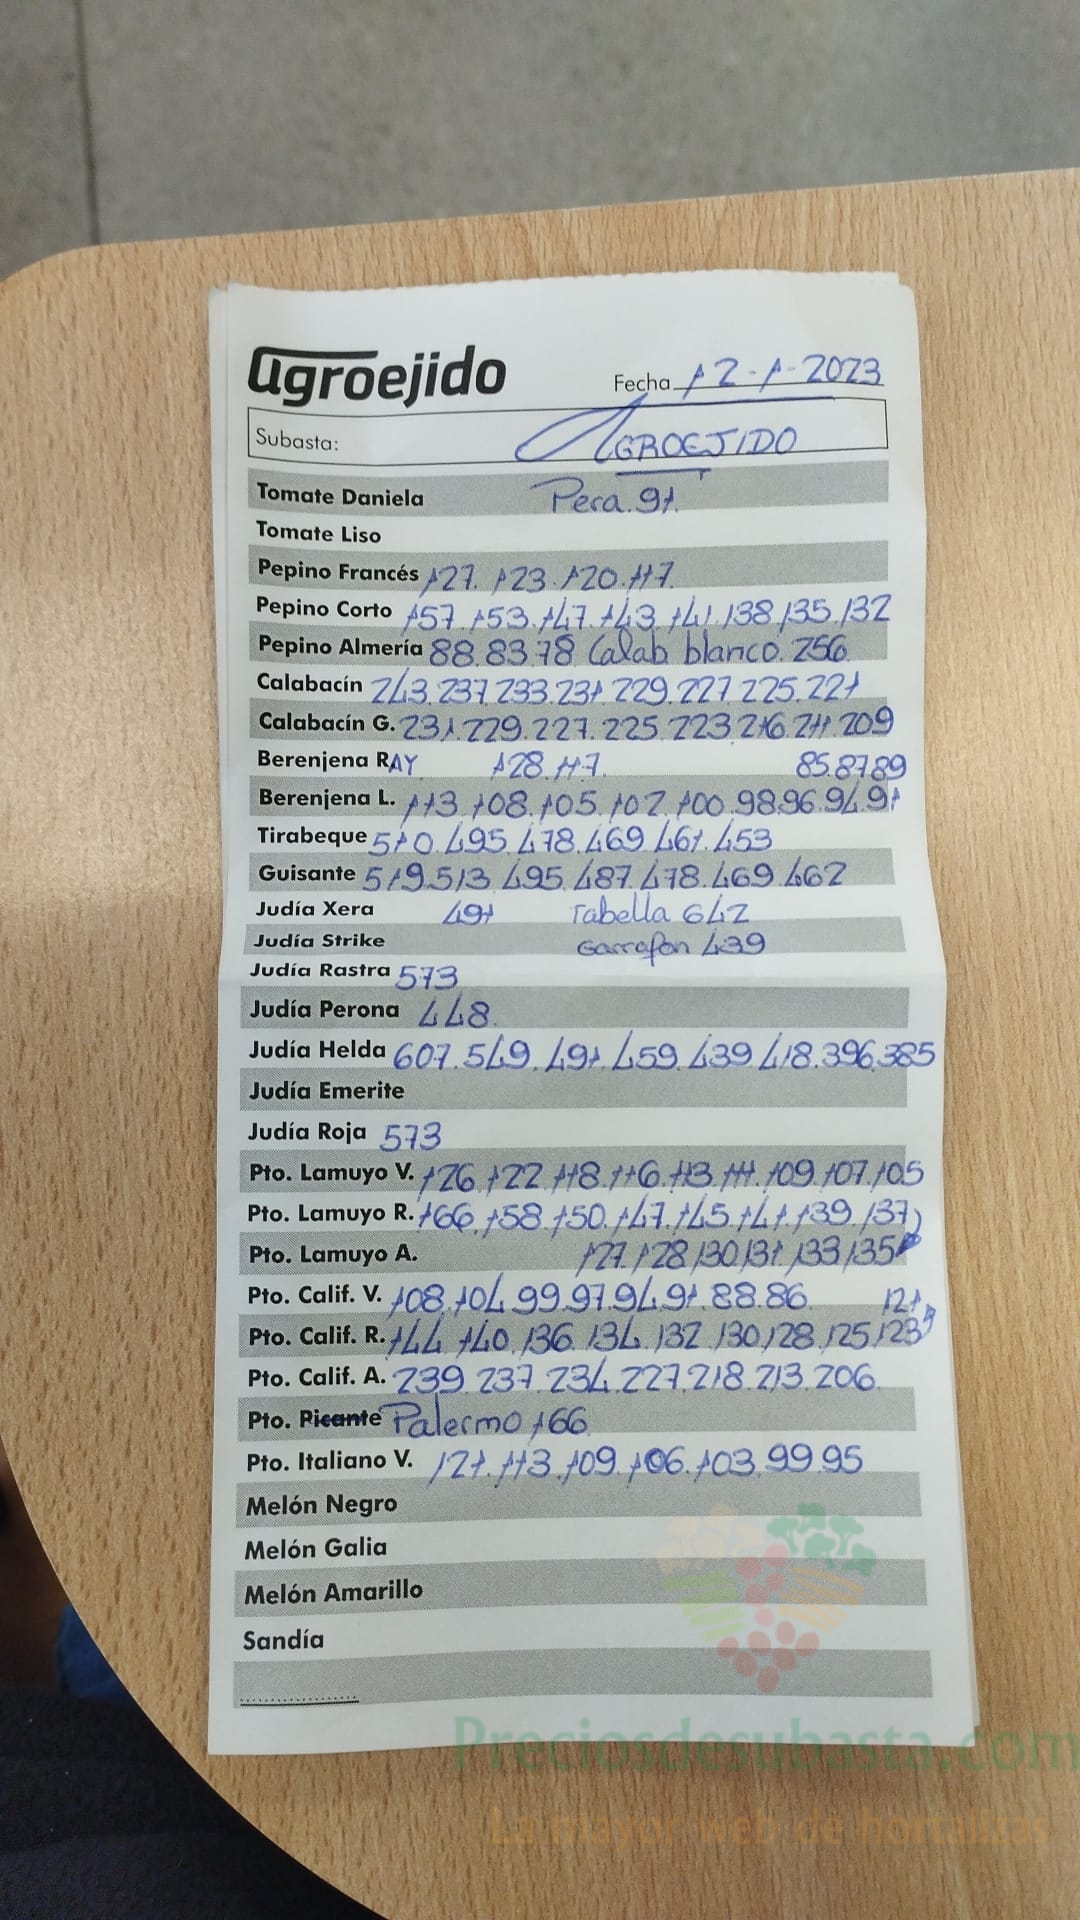 agroejido
Fecha 12-1-2023
Subasta: AGROEJIDO
Tomate Daniela Pera. 91.
Tomate Liso
Pepino Francés 127. 123. 120. 117.
Pepino Corto 157. 153. 147. 143. 141. 138. 135. 132
Pepino Almería 88. 83. 78 Calab. blanco. 256
Calabacín 243. 237. 233. 231. 229. 227. 225. 221
Calabacín G. 231. 229. 227. 225. 223. 216. 211. 209
Berenjena RAY 128. 117. 85. 87. 89
Berenjena L. 113. 108. 105. 102. 100. 98. 96. 94. 91
Tirabeque 510. 495. 478. 469. 461. 453
Guisante 519. 513. 495. 487. 478. 469. 462
Judía Xera 491 Tabella 642
Judía Strike Garrafon 439
Judía Rastra 573
Judía Perona 448.
Judía Helda 607. 549. 491. 459. 439. 418. 396. 385
Judía Emerite
Judía Roja 573
Pto. Lamuyo V. 126. 122. 118. 116. 113. 111. 109. 107. 105
Pto. Lamuyo R. 166. 158. 150. 147. 145. 141. 139. 137
Pto. Lamuyo A. 127. 128. 130. 131. 133. 135
Pto. Calif. V. 108. 104. 99. 97. 94. 91. 88. 86. 121
Pto. Calif. R. 144. 140. 136. 134. 132. 130. 128. 125. 123
Pto. Calif. A. 239. 237. 234. 227. 218. 213. 206.
Pto. Picante Palermo 166
Pto. Italiano V. 121. 113. 109. 106. 103. 99. 95
Melón Negro
Melón Galia
Melón Amarillo
Sandía
Preciosdesubasta.com
La mayor web de hortalisas